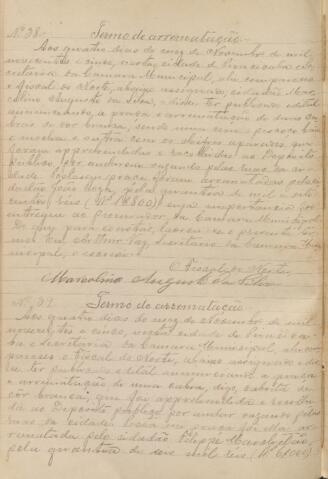 Nº 38. Termo de arrematação.
Aos quatro dias do mez de Novembro de mil
novecentos e cinco, nesta cidade de Piracicaba e Se-
cretaria da Camara Municipal, ahi compareceu
o Fiscal do Norte, abaixo assignado, cidadão Mar-
colino Augusto da Silva, e disse ter publicado edital
annunciando a praça e arrematação de duas ca-
bras de côr branca, sendo uma com
e mocha e outra com os
foram apprehendidas e recolhidas ao Deposito
Publico, por andarem vagando pelas ruas da ci-
dade. Posta em praça foram arrematadas pelo ci-
dadão João pela quantia de mil e oito-
centos réis (Rs 1$800) cuja importancia foi
entregue ao Procurador da Camara Municipal.
Do que para constar, lavrou-se o presente ter-
mo. Eu Secretario da Camara Muni-
cipal, o escrevi.
O Fiscal do Norte,
Marcolino Augusto da Silva
Nº 39. Termo de arrematação.
Aos quatro dias do mez de Novembro de mil
novecentos e cinco, nesta cidade de Piracica-
ba e Secretaria da Camara Municipal, ahi com-
pareceu o Fiscal do Norte, abaixo assignado e dis-
se ter publicado edital annunciando a praça
e arrematação de uma cabra, digo, cabrito de
côr branca, que foi apprehendido e recolhi-
do ao Deposito publico por andar vagando pelas
ruas da cidade. Posta em praça foi ella ar-
rematada pelo cidadão Felippe
pela quantia de seis mil réis (Rs 6$000)